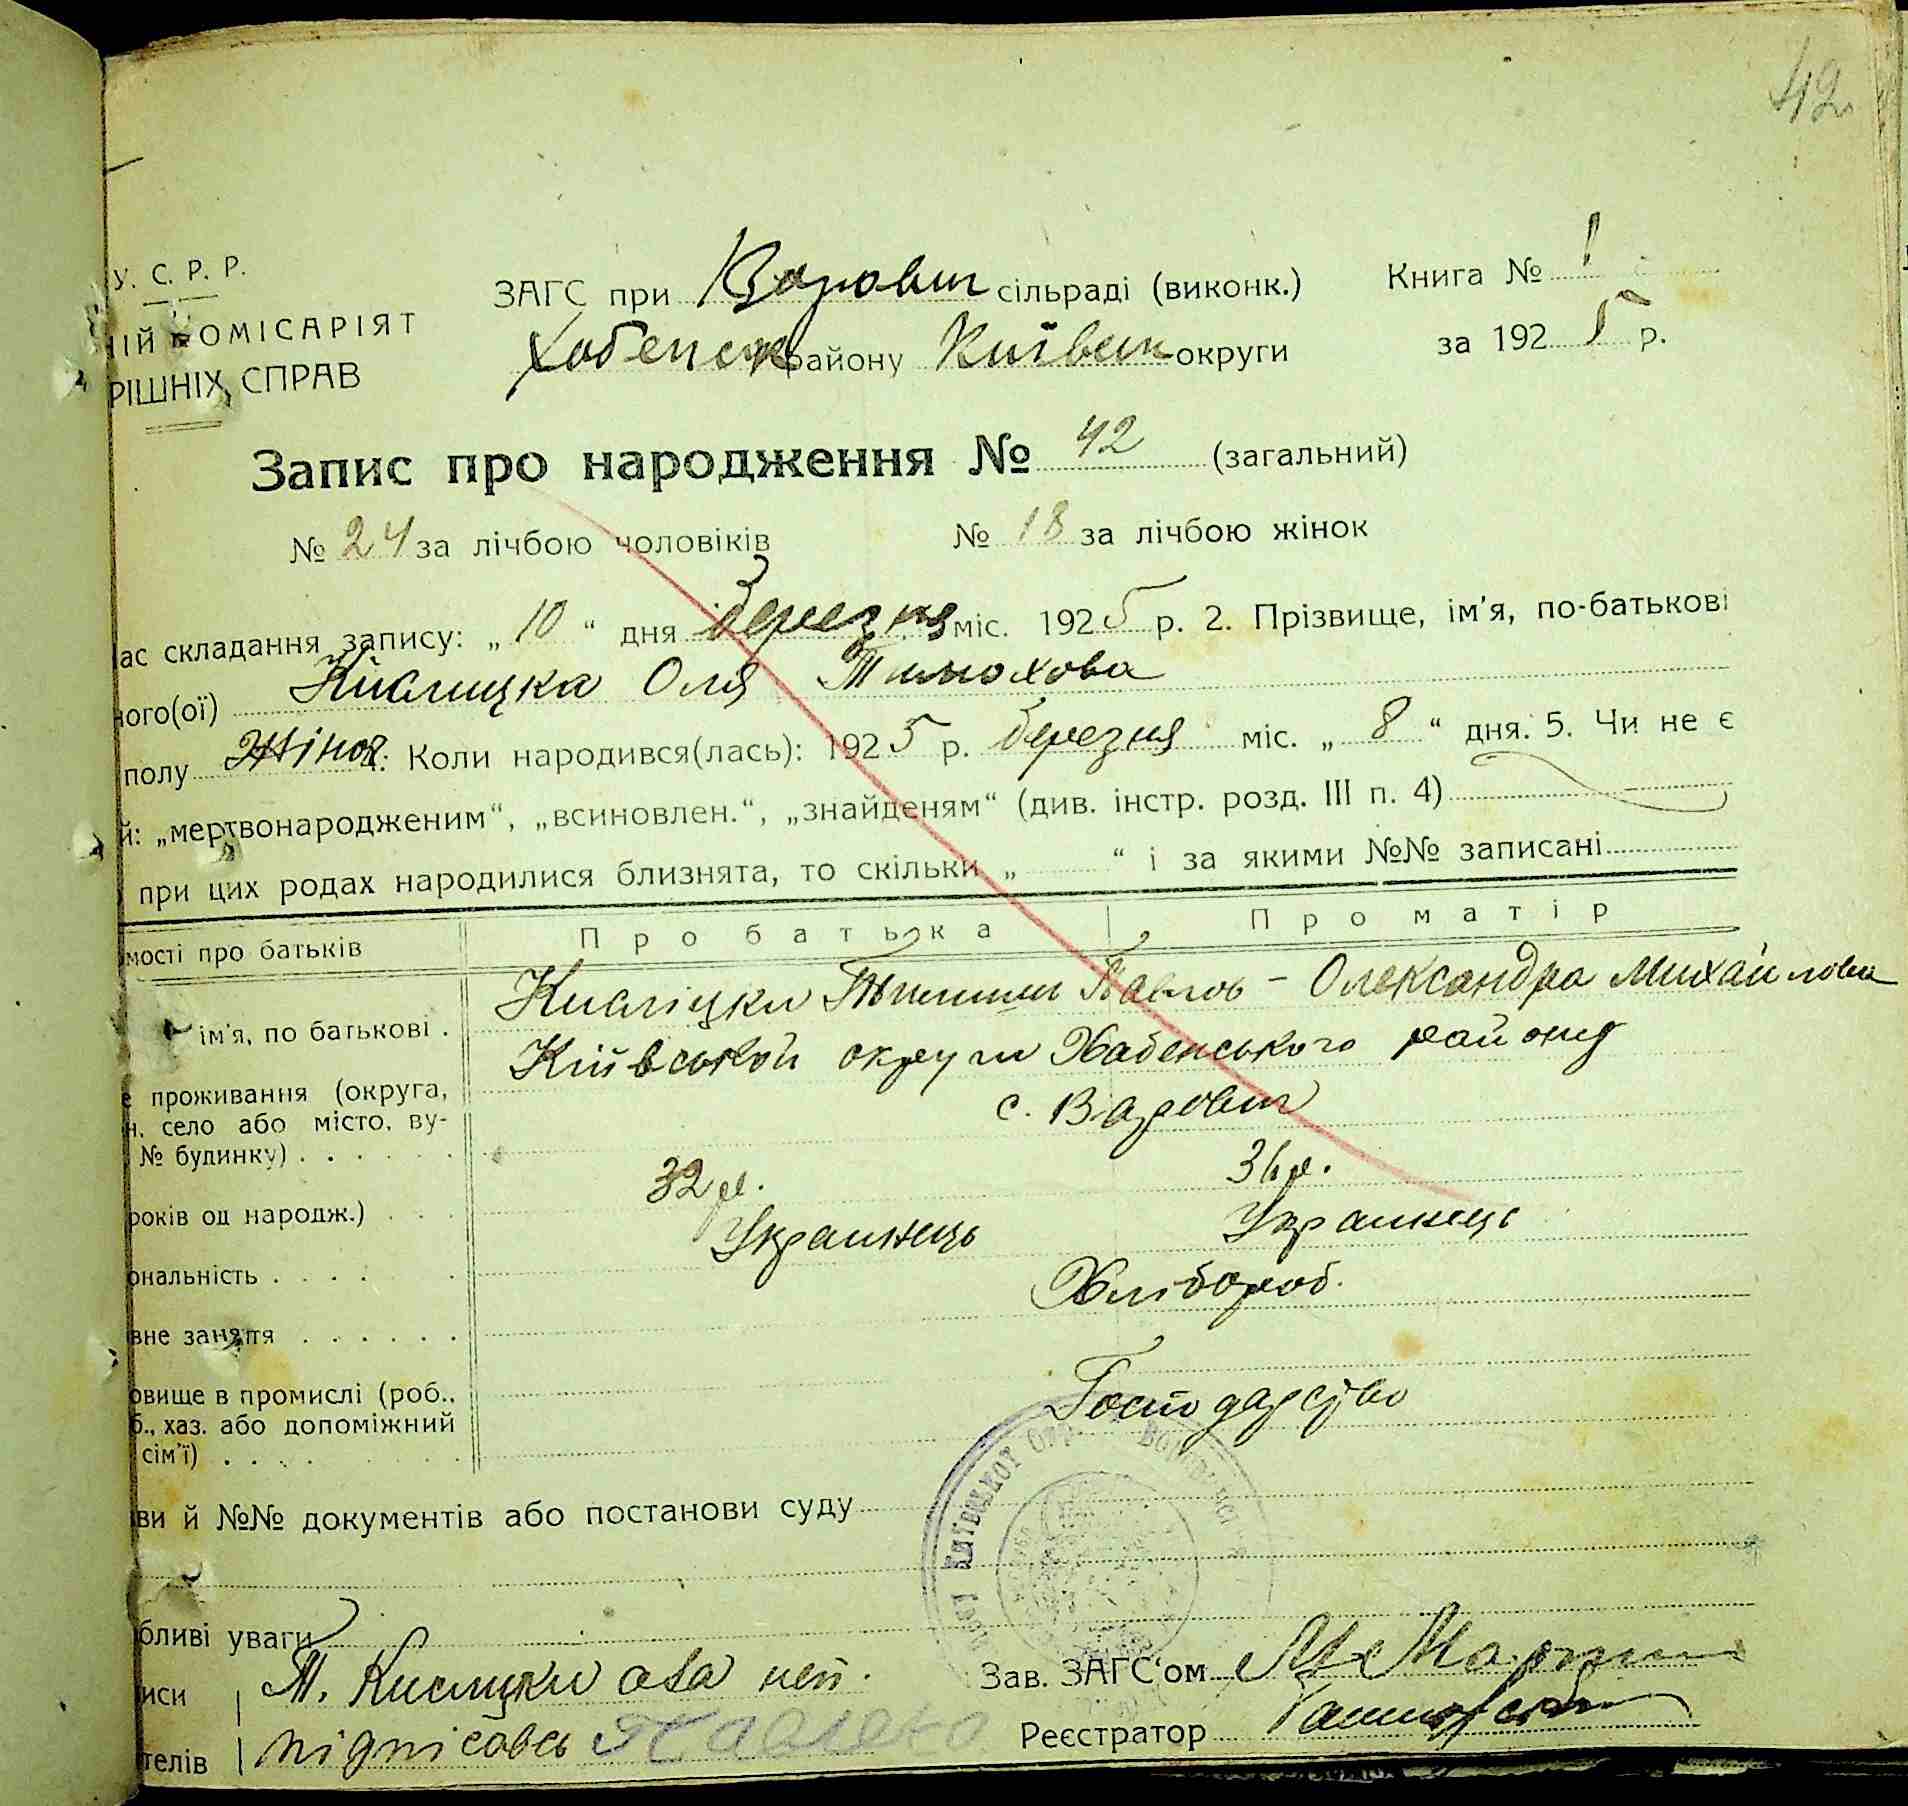 42
У. С. Р. Р.
НІЙ КОМІСАРІЯТ
РІШНІХ СПРАВ
ЗАГС при Варович сільраді (виконк.)
Хабенськ району Київськ округи
Книга № 1
за 1925 р.
Запис про народження № 42 (загальний)
№ 24 за лічбою чоловіків № 18 за лічбою жінок
ас складання запису: „ 10 “ дня березня міс. 1925 р. 2. Прізвище, ім'я, по-батькові
ного(ої) Кислицка Оля Тимохова
полу Жіноч. Коли народився(лась): 1925 р. березня міс. „ 8 “ дня. 5. Чи не є
й: „мертвонародженим“, „всиновлен.“, „знайденям“ (див. інстр. розд. III п. 4)
при цих родах народилися близнята, то скільки „ “ і за якими №№ записані
мості про батьків Про батька Про матір
ім'я, по батькові . Кисліцки Павлов - Олександра Михайлова
е проживання (округа, Київськой округи Хабенського району
н. село або місто, ву- с. Варович
№ будинку)
років од народж.) 32 р. 36 р.
ональність Украинець Украинець
вне заняття Хлібороб.
овище в промислі (роб., Господарство
б., хаз. або допоміжний
сім'ї)
ви й №№ документів або постанови суду
КИЇВСЬКОЇ
бливі уваги
иси Т. Кислицки а за неп.
телів підпісавсь Павленко
Зав. ЗАГС‘ом
Реєстратор